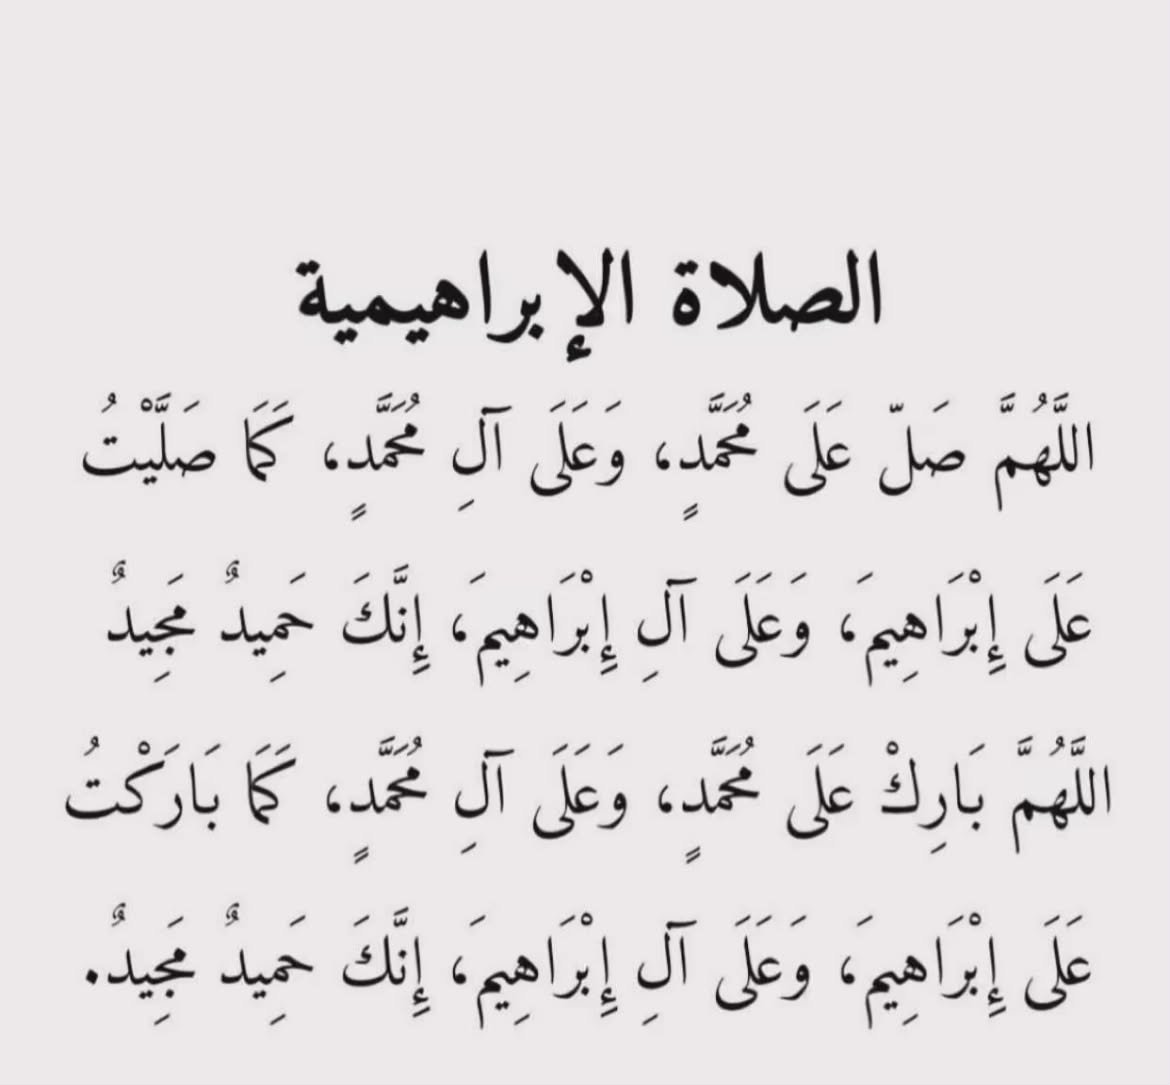 الصلاة الإبراهيمية
اللَّهُمَّ صَلّ عَلَى مُحَمَّدٍ، وَعَلَى آلِ مُحَمَّدٍ، كَمَا صَلَّيْتُ
عَلَى إِبْرَاهِيمَ، وَعَلَى آلِ إِبْرَاهِيمَ، إِنَّكَ حَمِيدٌ مَجِيدٌ
اللَّهُمَّ بَارِكْ عَلَى مُحَمَّدٍ، وَعَلَى آلِ مُحَمَّدٍ، كَمَا بَارَكْتُ
عَلَى إِبْرَاهِيمَ، وَعَلَى آلِ إِبْرَاهِيمَ، إِنَّكَ حَمِيدٌ مَجِيدٌ.